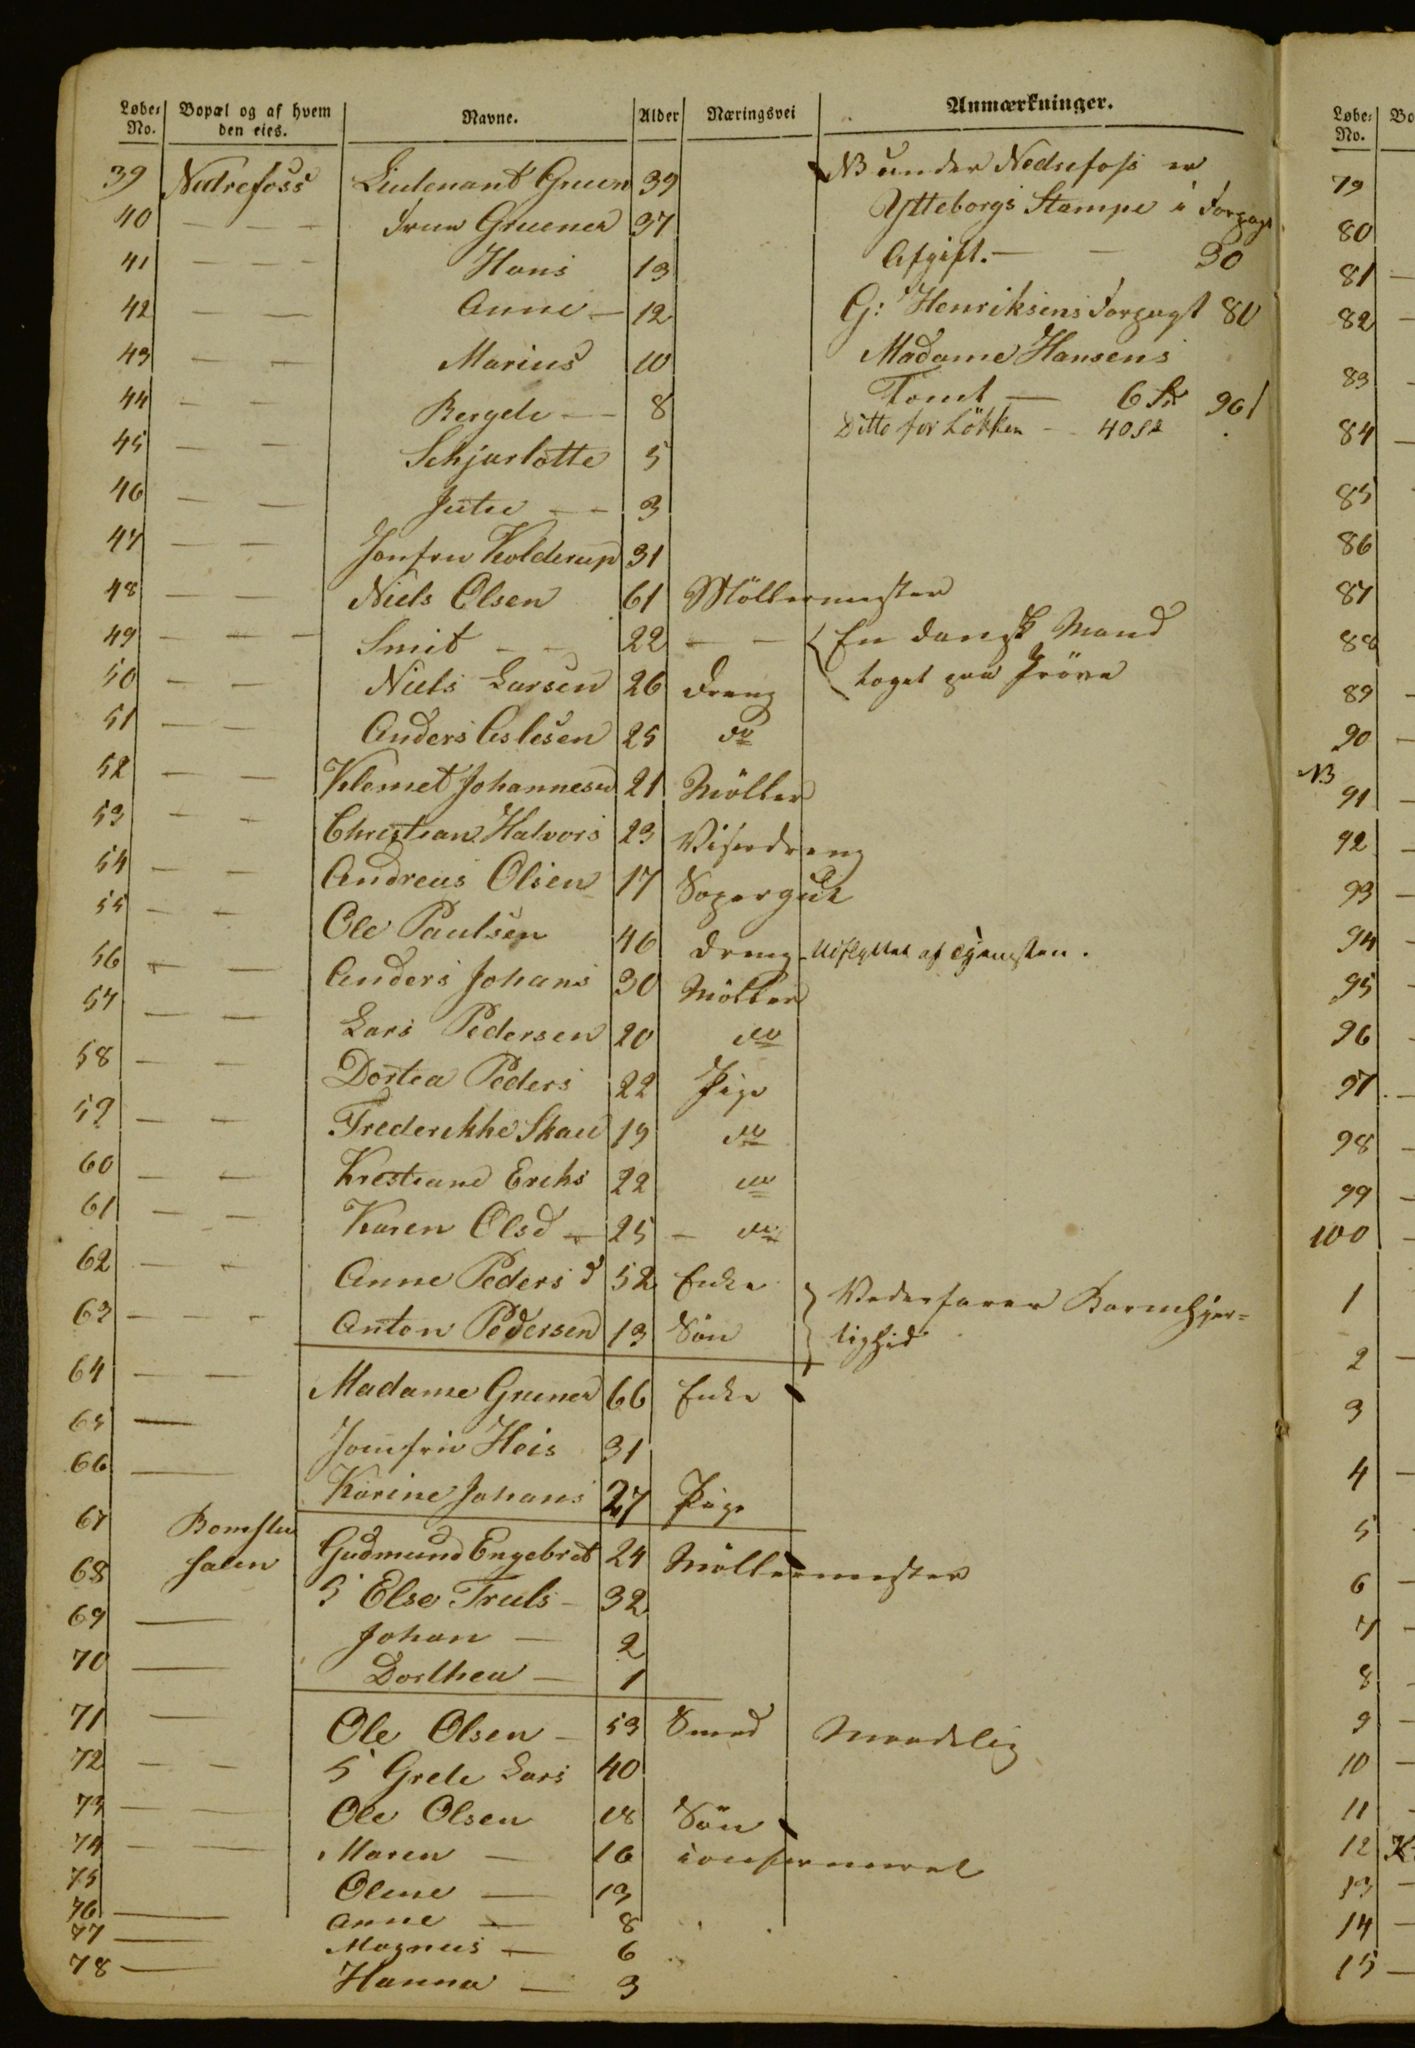 Løbe- No. Bopæl og af hvem den eies. Navne. Alder Næringsvei Anmærkninger.
39 Nedrefoss Lieutenant Gruen 39 NB under Nedrefoss er
40 — — — Frue Gruener 37 Ytteborgs Stampe i Forpagt
41 — — — Hans 13 Afgift. — — 30
42 — — Anne — 12 G: Henriksens Forpagt 80
43 — — Marius 10 Madame Hansens
44 — — Bergete — 8 Tomt — 6 96
45 — — Schjarlotte 5 Ditte for Løkken — 40
46 — — Jutte — — 3
47 — — Jomfru Kolderup 31
48 — — Niels Olsen 61 Møllermester
49 — — — Smit — — 22 — — En dansk Mand
50 — — Niels Larsen 26 dreng taget paa Prøve
51 — — Anders Aslesen 25 do
52 — — Klemet Johannesen 21 Møller
53 — — Christian Halvors 23 Viserdreng
54 — — Andreas Olsen 17 Sopergut
55 — — Ole Paulsen 46 dreng Udflyttet af Tjenesten.
56 — — Anders Johans 30 Møller
57 — — Lars Pedersen 20 do
58 — — Dortea Peders 22 Pige
59 — — Frederikke Skau 19 do
60 — — Krestiane Eriks 22 do
61 — — Karen Olsd — 25 — do
62 — — Anne Peders d 52 Enke Vederfarer Barmhjer-
63 — — — Anton Pedersen 13 Søn tighed
64 — — Madame Gruner 66 Enke
65 — Jomfru Heis 31
66 — Karine Johans 27 Pige
67 Bomstue Gudmund Engebret 24 Møllermester
68 salen 5 Else Truls — 32
69 — Johan — 2
70 — Dorthea — 1
71 — Ole Olsen — 53 Smed Maadelig
72 — — 5 Grete Lars 40
73 — — Ole Olsen 18 Søn
74 — — Maren — 16 confirmeret
75 Oline — 13
76 — Anne — 8
77 — Magnus — 6
78 — Hanna — 3
Løbe- No. Bo
79
80
81 —
82 —
83 —
84 —
85
86
87
88
89 —
90 —
NB
91 —
92 —
93 —
94 —
95 —
96 —
97 —
98 —
99 —
100 —
1
2 —
3
4 —
5
6 —
7 —
8 —
9 —
10 —
11 —
12 K
13 —
14 —
15 —